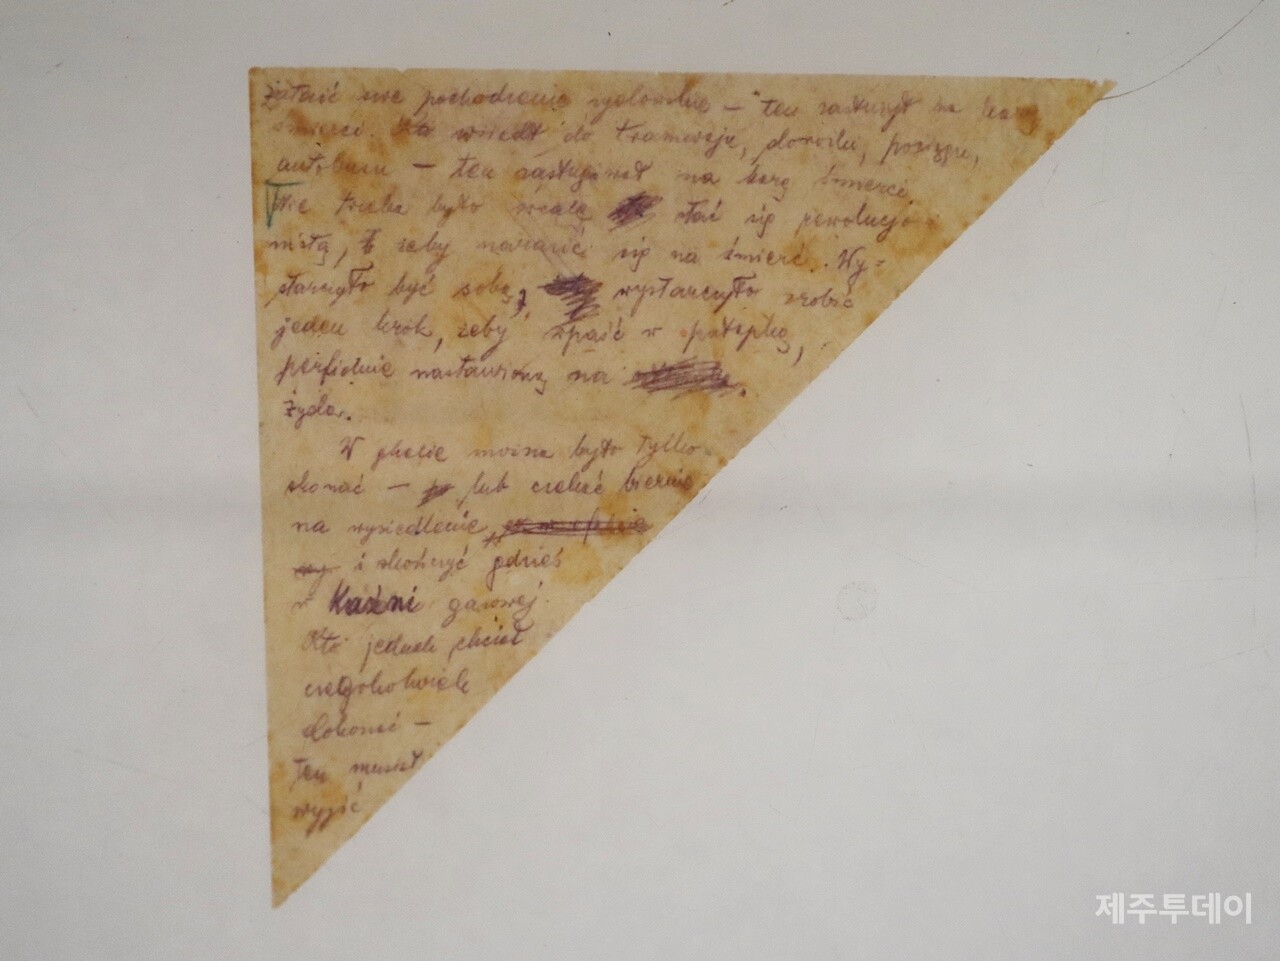 zataić swe pochodzenie żydowskie — ten zasłużył na karę
śmierci. Kto wsiadł do tramwaju, dorożki, pociągu,
autobusu — ten zasługiwał na karę śmierci
Nie trzeba było wcale stać się rewolucjo
nistą, żeby narazić się na śmierć. Wy=
starczyło być sobą, wystarczyło zrobić
jeden krok, żeby wpaść w pułapkę,
perfidnie nastawioną na
Żyda.
W ghecie można było tylko
skonać — lub czekać biernie
na wysiedlenie
i skończyć gdzieś
w Kaźni gazowej.
Kto jednak chciał
czegokolwiek
dokonać —
ten musiał
wyjść
제주투데이